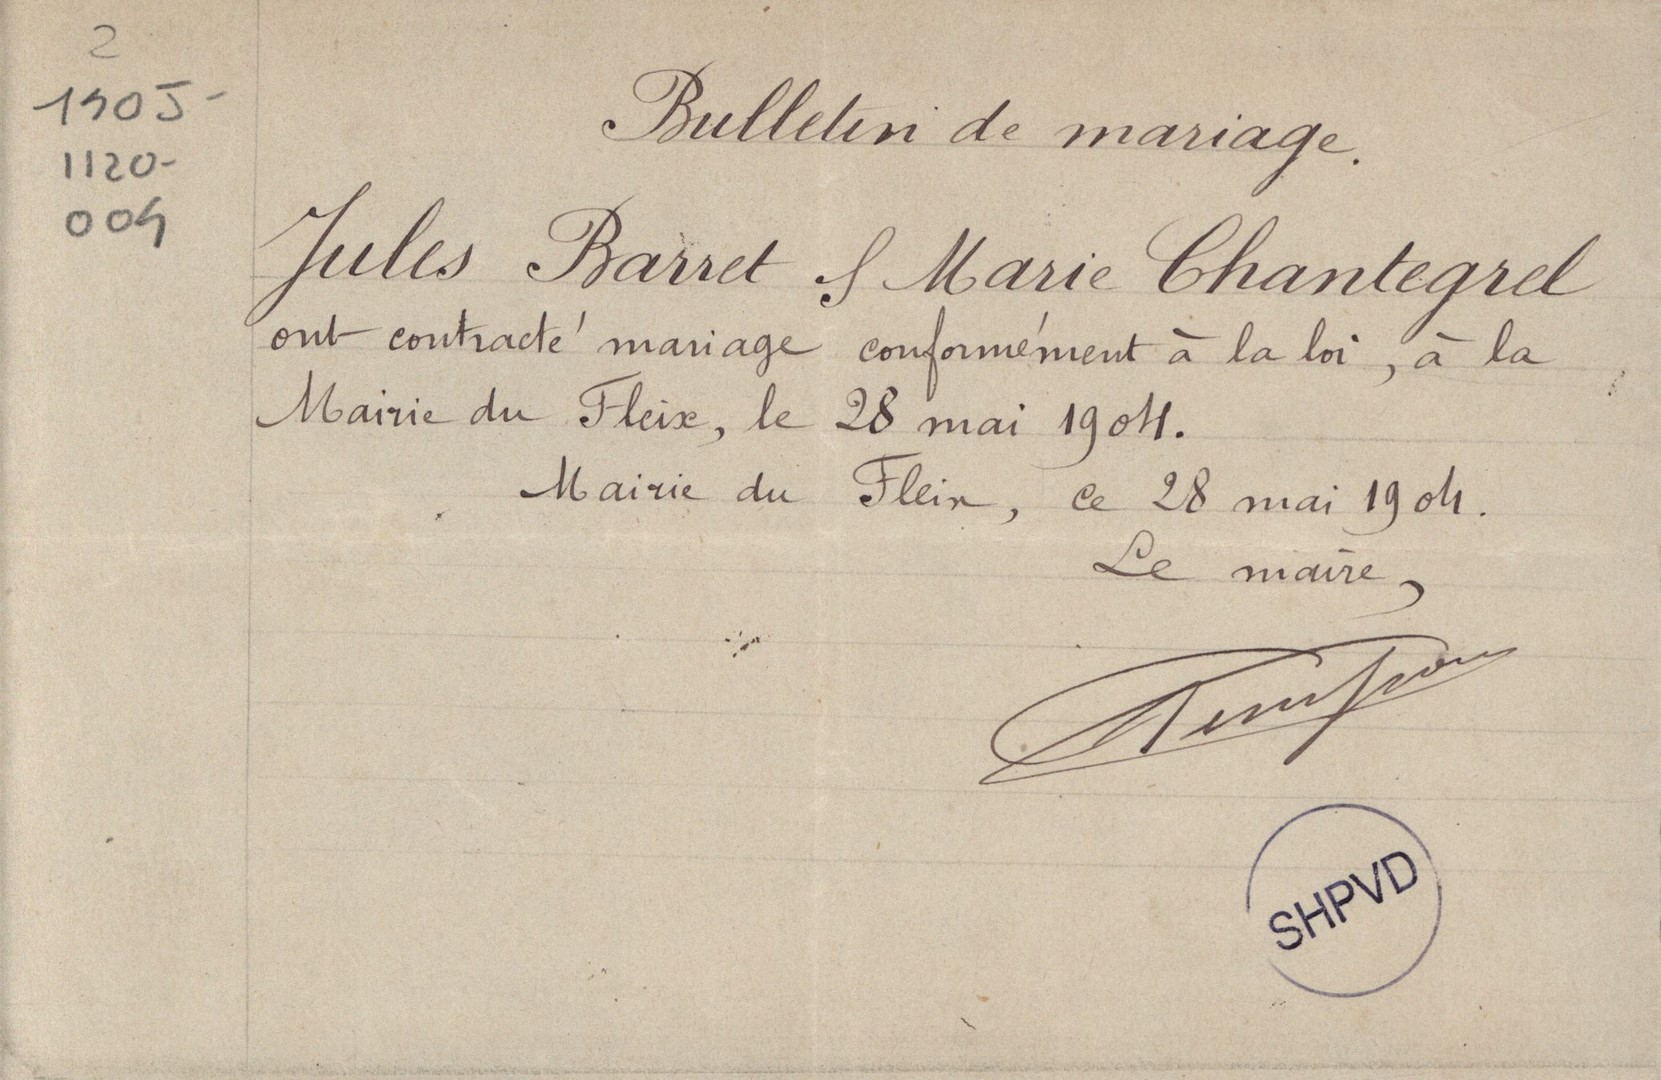 2
1905-
1120-
004
Bulletin de mariage.
Jules Barret & Marie Chantegrel
ont contracté mariage conformément à la loi, à la
Mairie du Fleix, le 28 mai 1904.
Mairie du Fleix, ce 28 mai 1904.
Le maire,
SHPVD